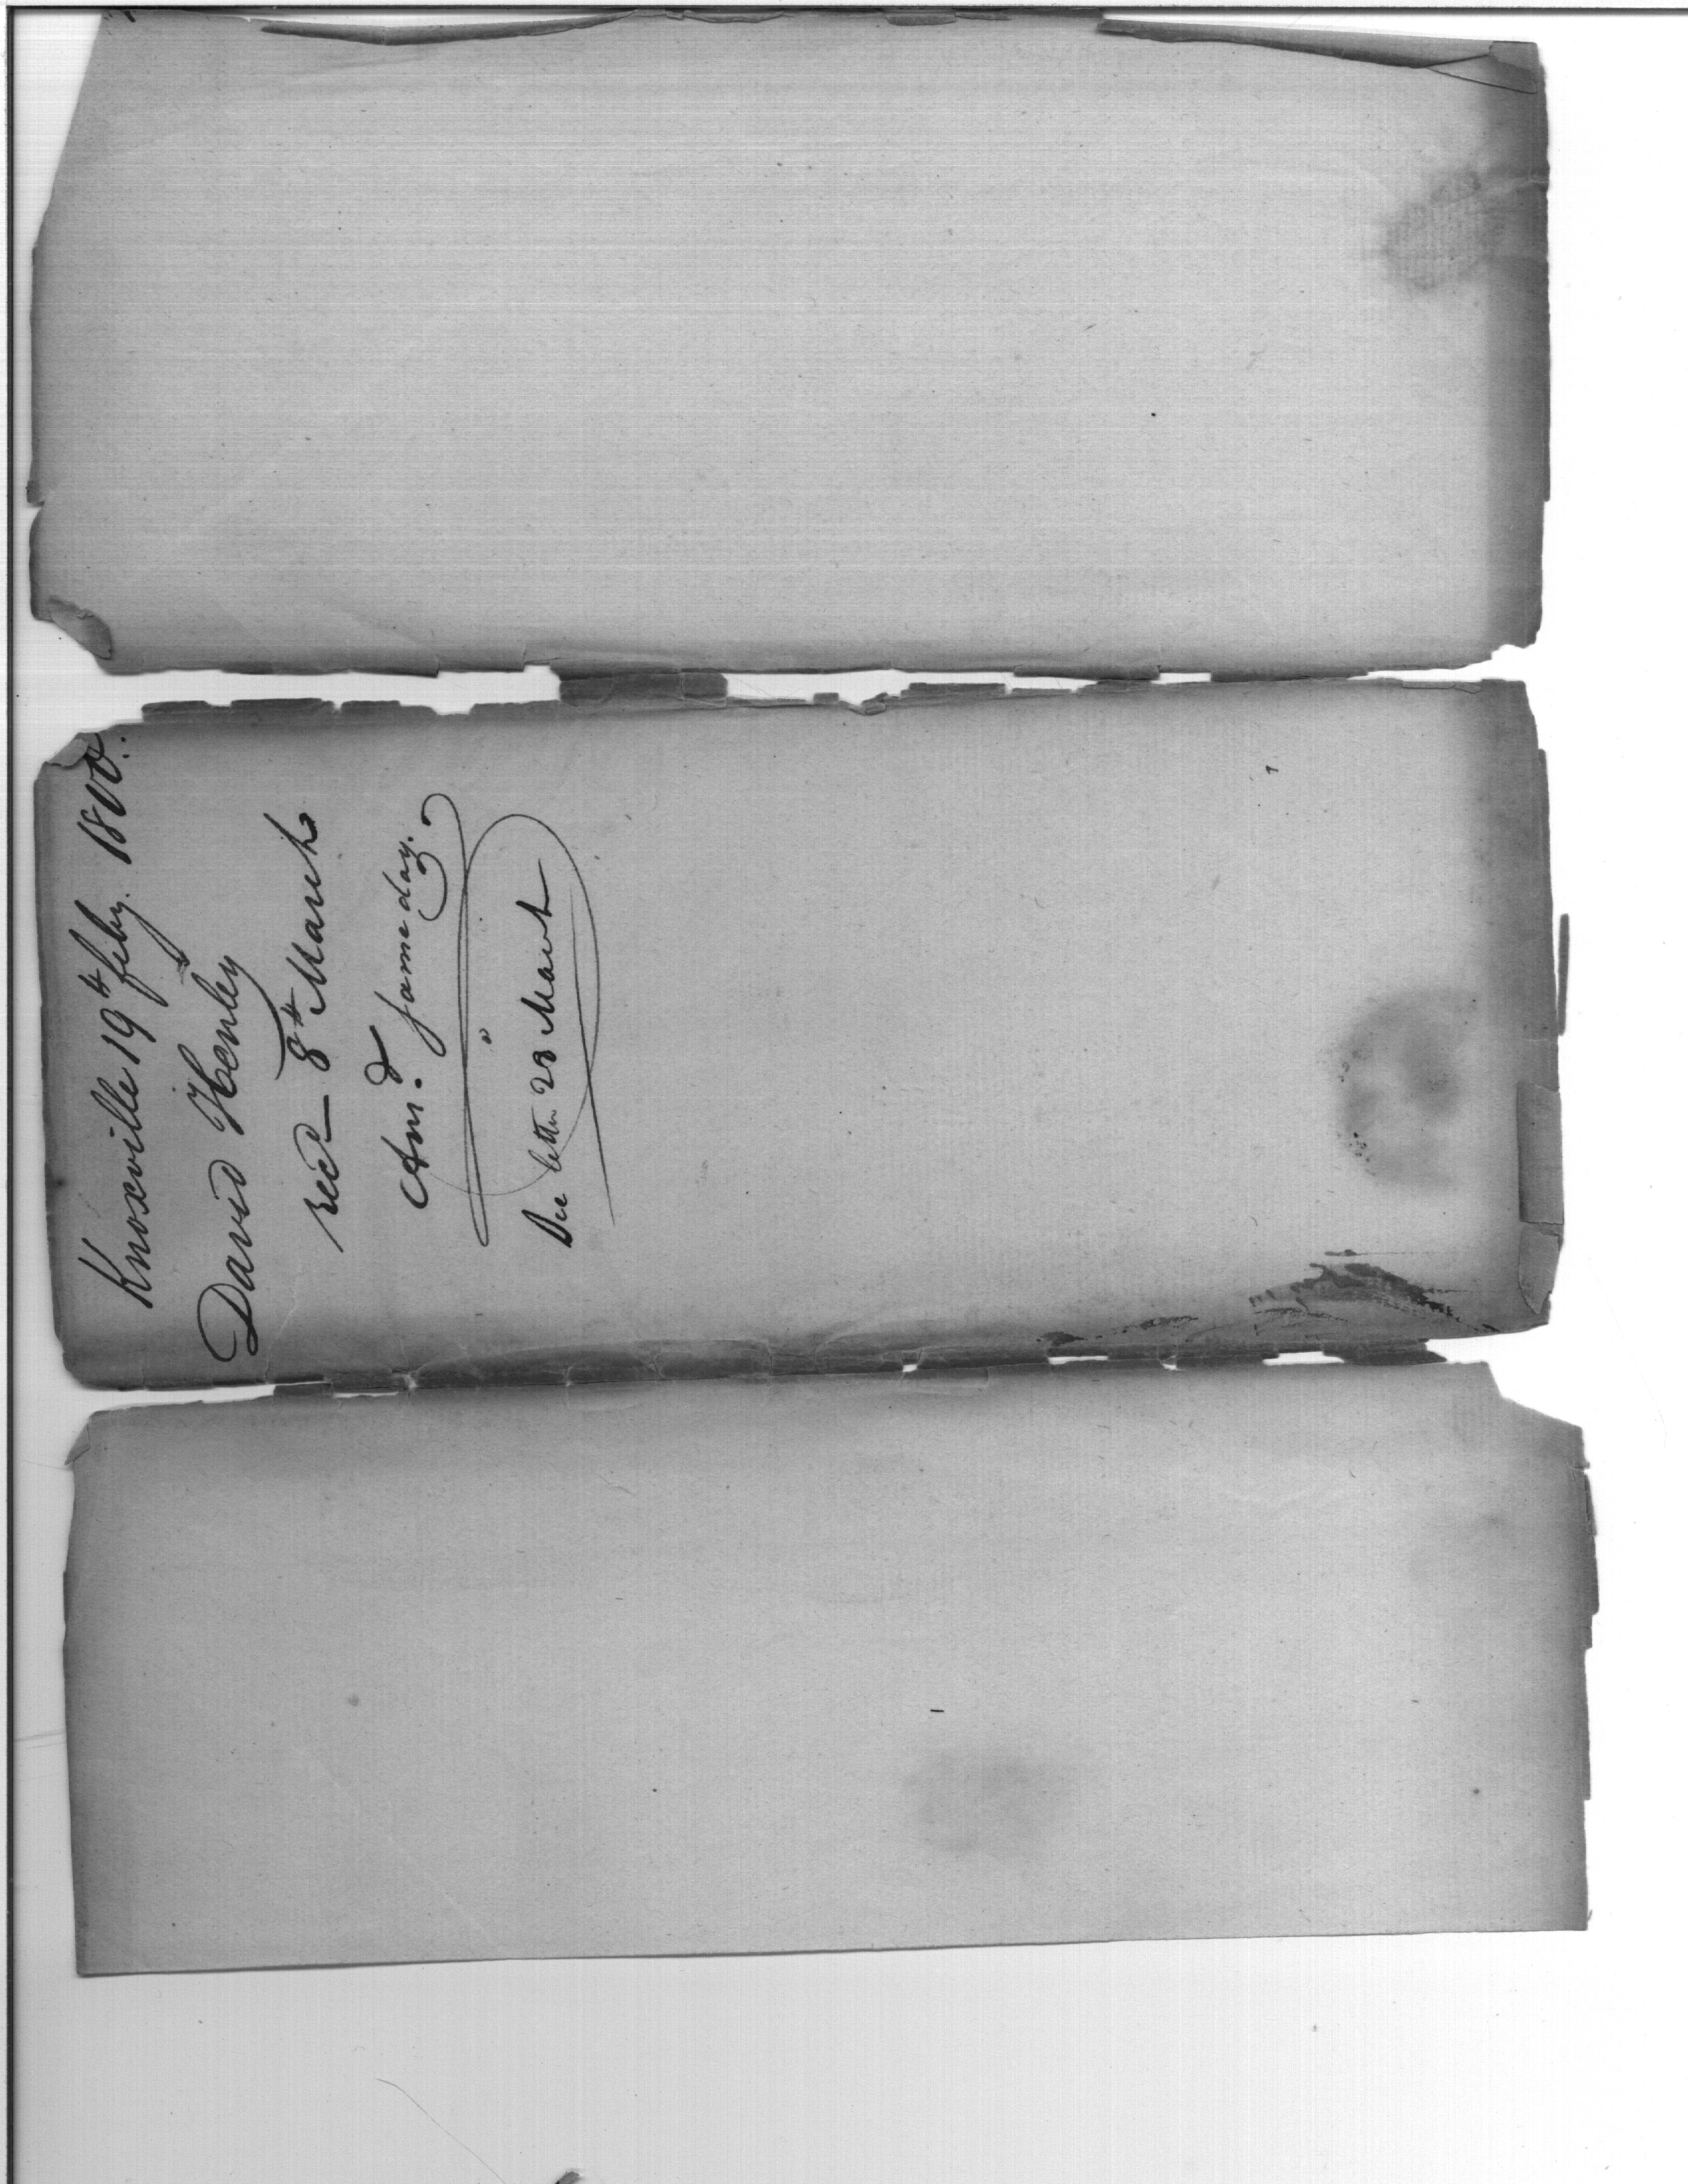 Knoxville 19th feby. 1800.
David Henley
recd 8th March
Ansd. same day.
See letter 28 March